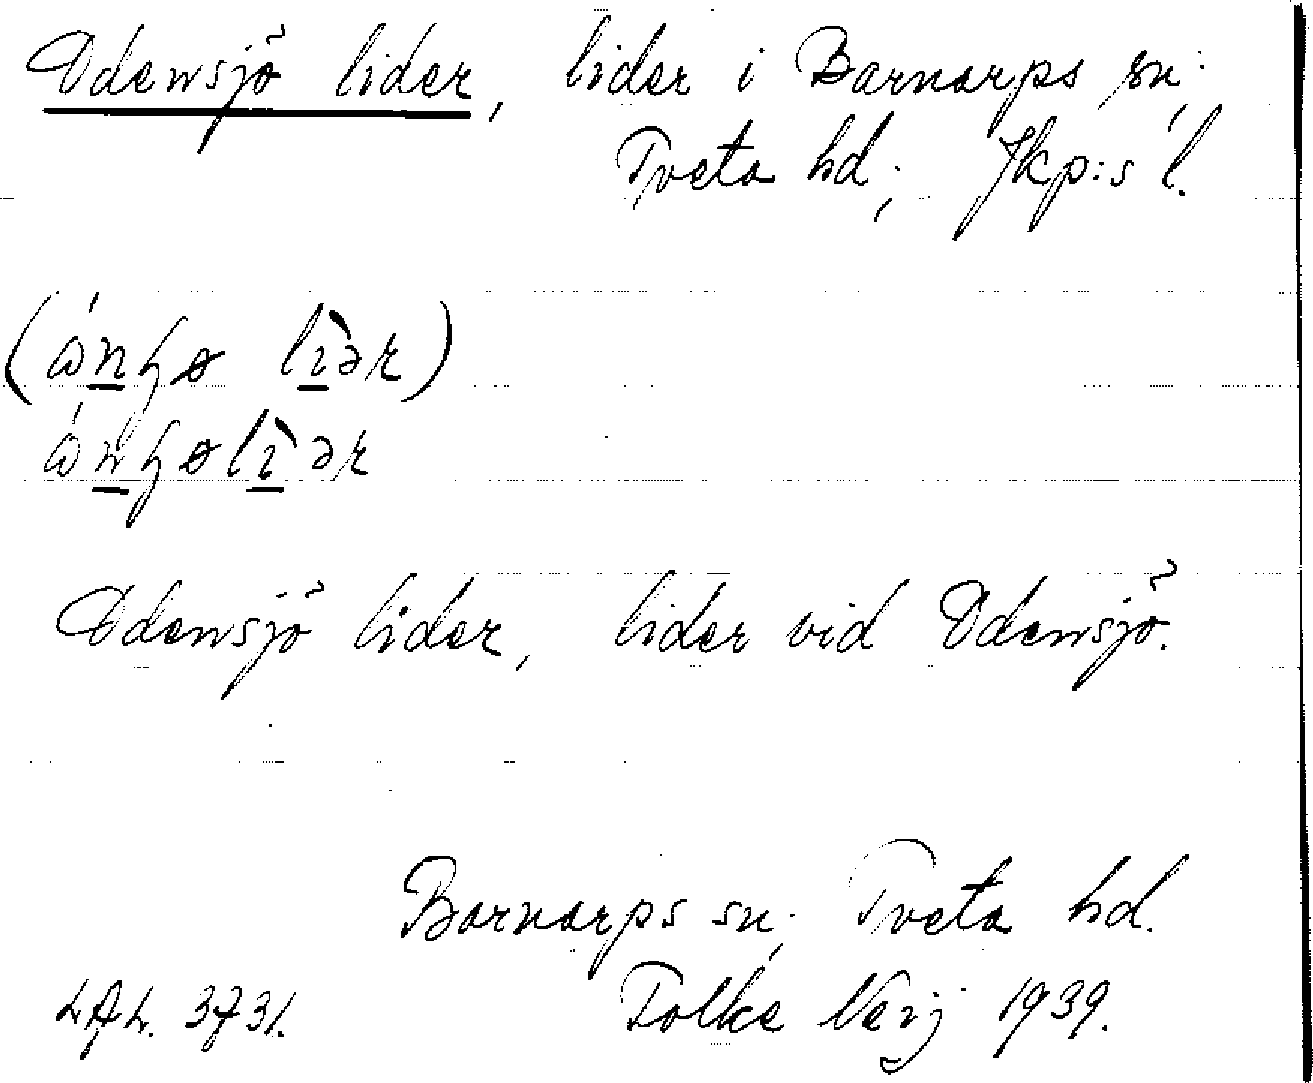 Odensjö lider, lider i Barnarps sn;
Tveta hd; Jkp:s l.
Odensjö lider, lider vid Odensjö.
Barnarps sn; Tveta hd.
LAL. 3731. Folke Neij 1939.